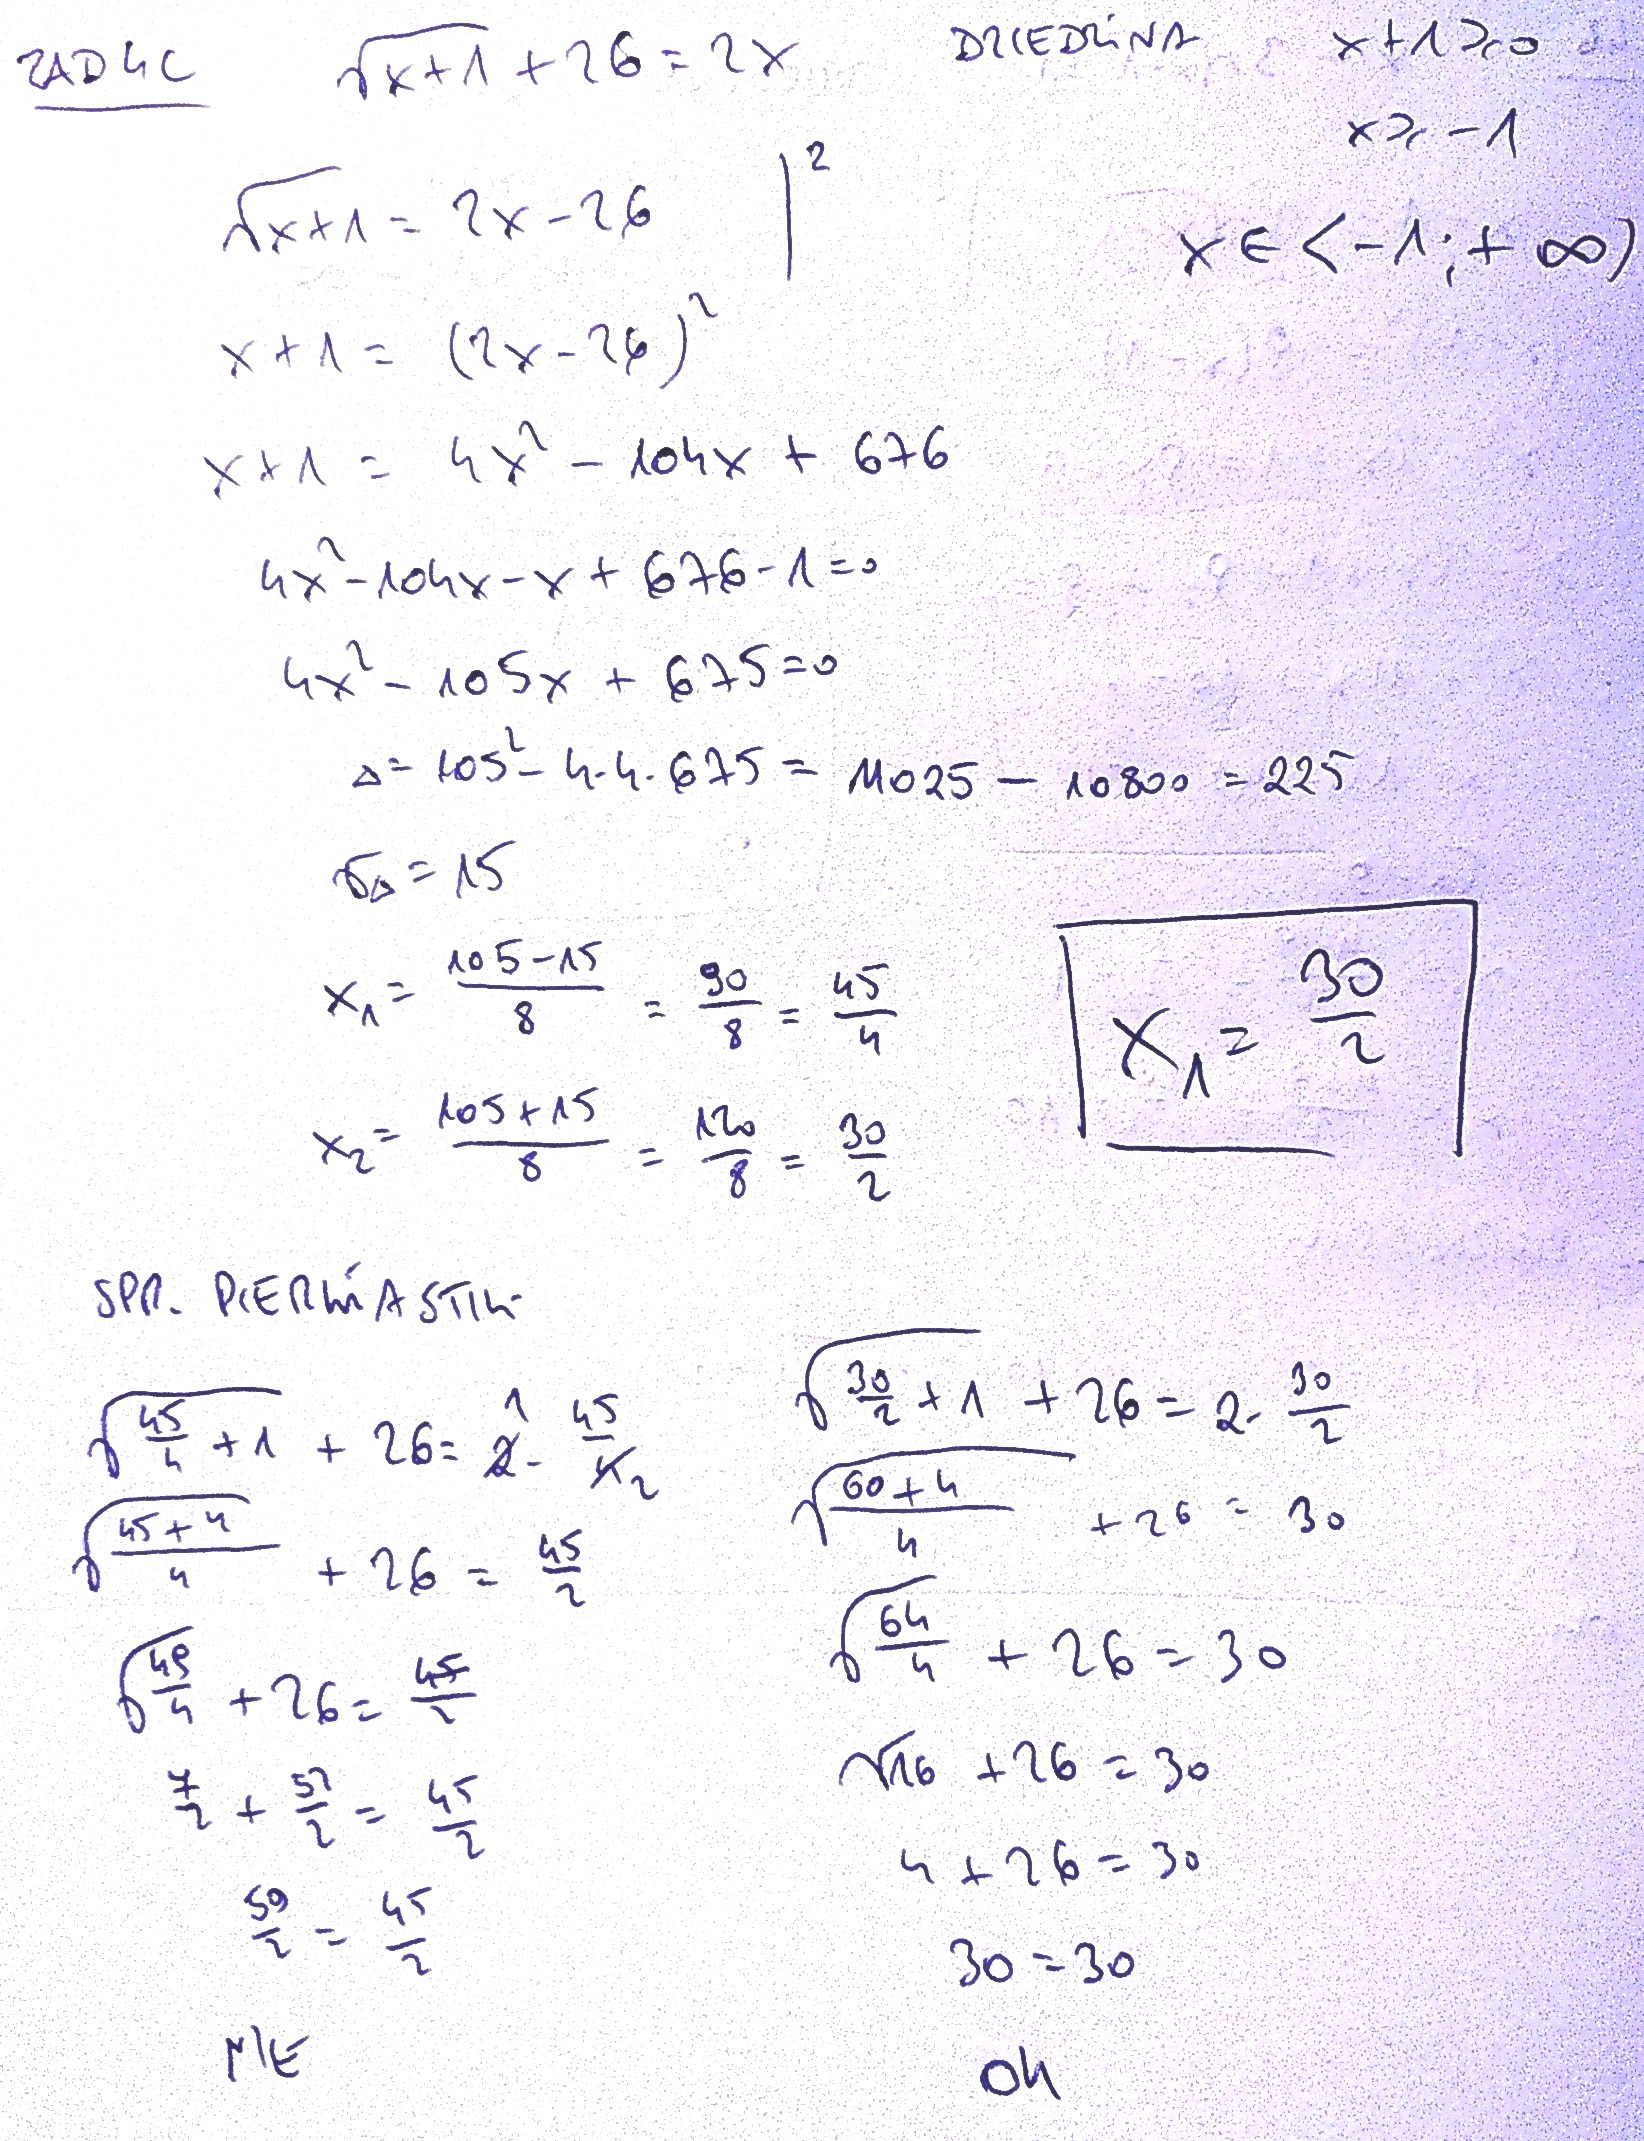 ZAD 4C √x+1 + 26 = 2x DZIEDZINA x+1 ≥ 0
x ≥ -1
√x+1 = 2x - 26 |²
x ∈ <-1; +∞)
x+1 = (2x-26)²
x+1 = 4x² - 104x + 676
4x² - 104x - x + 676 - 1 = 0
4x² - 105x + 675 = 0
Δ = 105² - 4·4·675 = 11025 - 10800 = 225
√Δ = 15
x₁ = (105-15)/8 = 90/8 = 45/4
x₁ = 30/2
x₂ = (105+15)/8 = 120/8 = 30/2
SPR. PIERWIASTK
√(45/4 + 1) + 26 = 2 1 · 45/4 2
√((45+4)/4) + 26 = 45/2
√(49/4) + 26 = 45/2
7/2 + 52/2 = 45/2
59/2 = 45/2
NIE
√(30/2 + 1) + 26 = 2 · 30/2
√((60+4)/4) + 26 = 30
√(64/4) + 26 = 30
√16 + 26 = 30
4 + 26 = 30
30 = 30
Ok